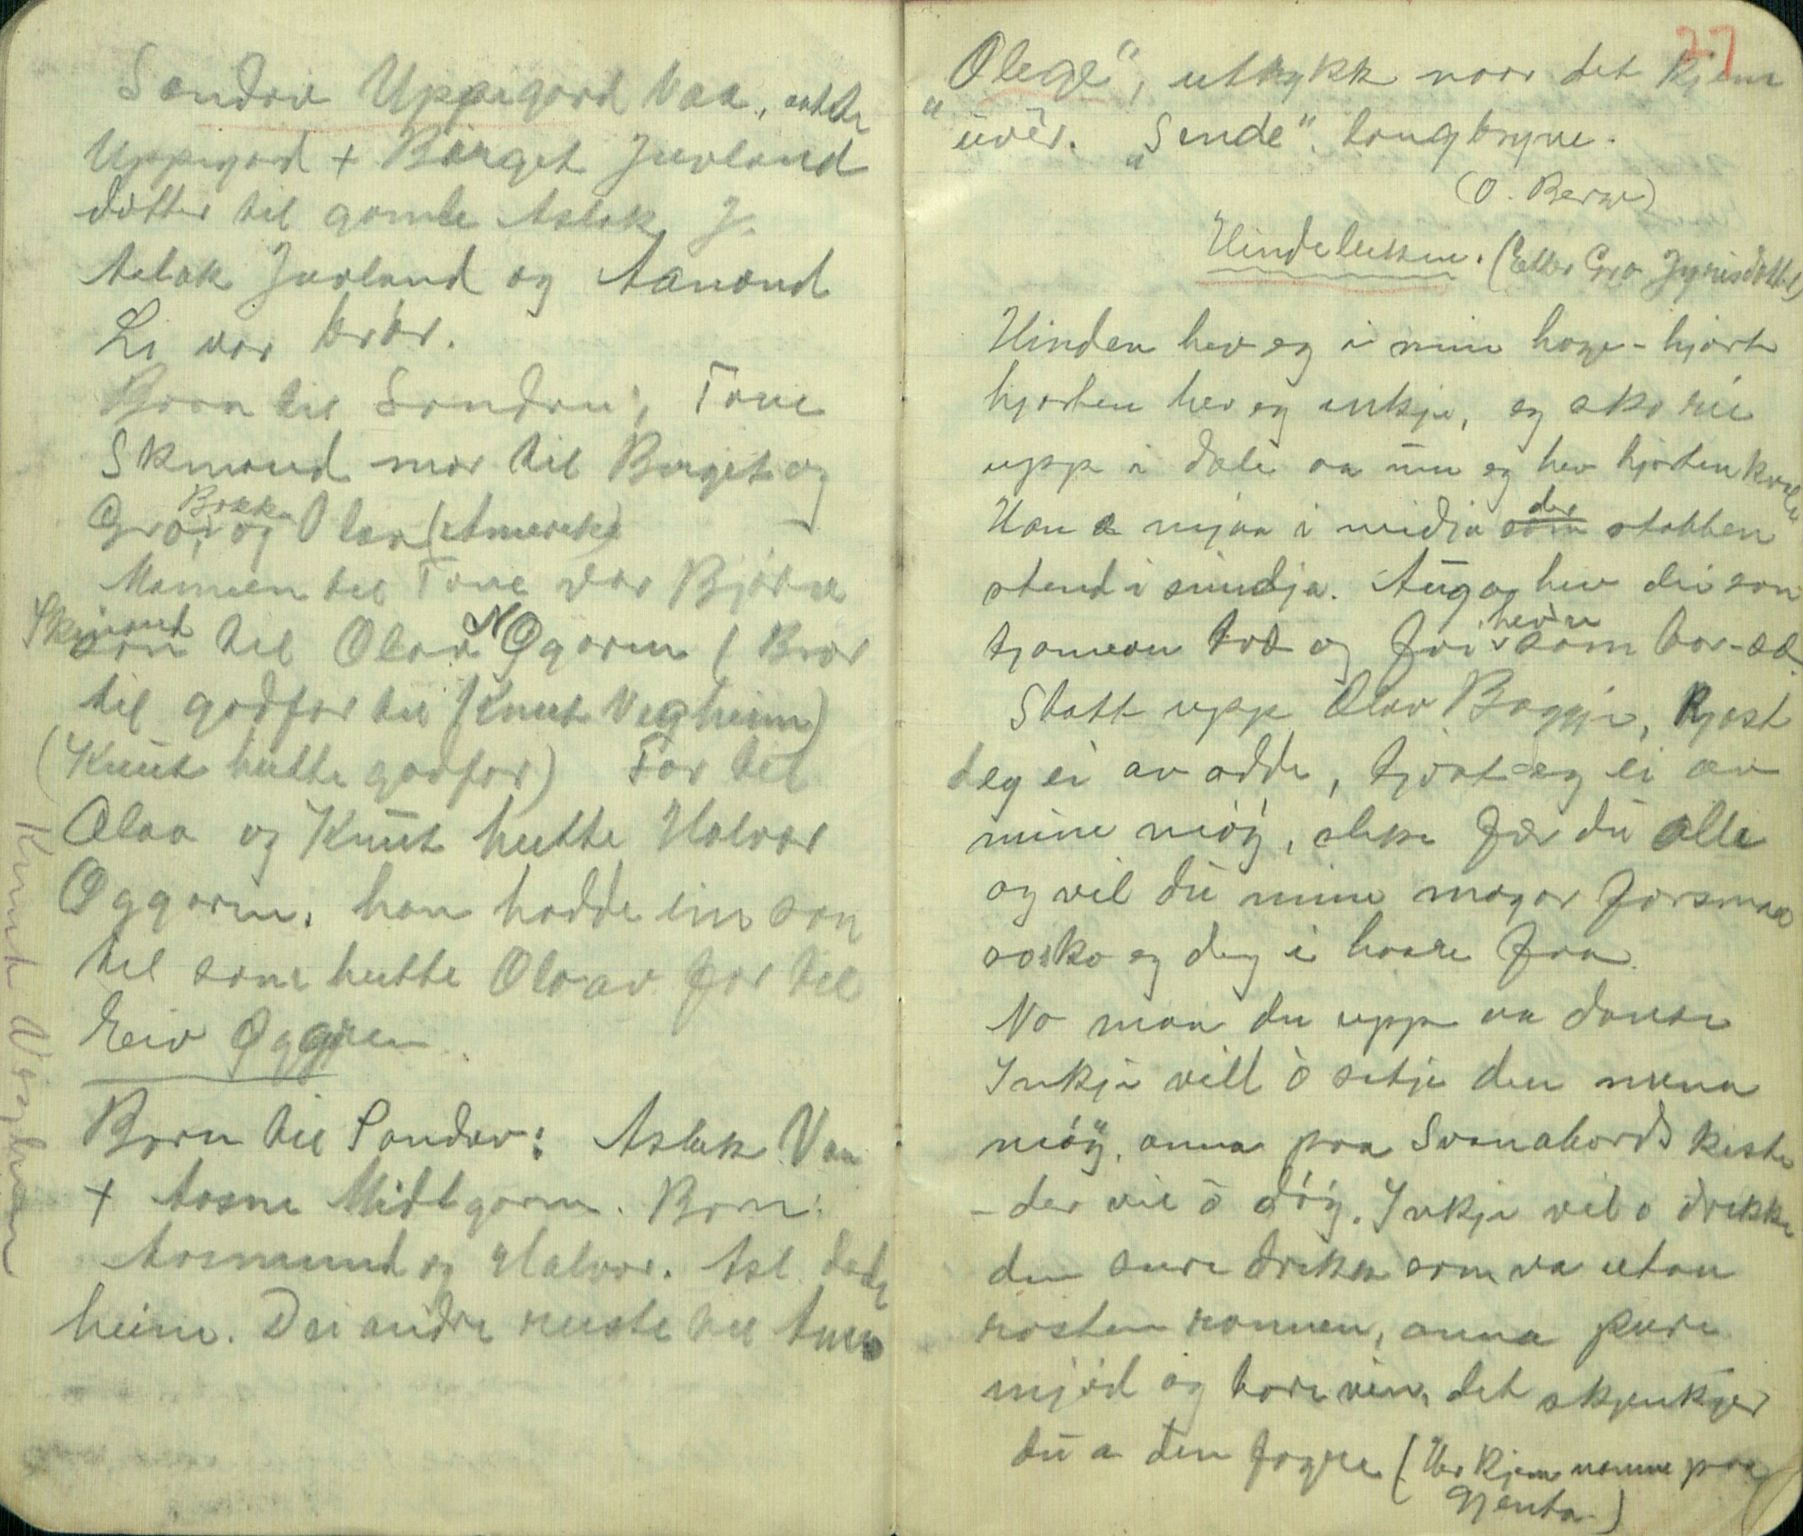 Sondov Uppigard Vaa, aatte
Uppigard + Børget Juvland
dotter til gamle Aslak J.
Aslak Juvland og Aanond
Li var brør.
Born til Sondov; Tone
Skmoud mor til Børget og
Gro, Bokk og Olav (Amerika)
Mannen til Tone var Bjørn
Skmoud son til Olav N Øygarn (Bror
til godfar til Knut Vegheim)
(Knut hette godfar) Far til
Olav og Knut hette Halvor
Øygarn, han hadde ein son
til som hette Olaav far til
Eiv Øygaren.
Born til Sondov: Aslak Vaa
+ Aasne Midtgarn. Born:
Aasmund og Halvor. Asl. døde
heime. Dei andre reiste til Amr.
Knut Vegheim
27
"Olege", utkykk naar det kjem
uvêr. "Sende". langbryne.
(O. Berge)
Hindeleikin. (Etter Gro Jynisdotter)
Hinden hev eg i min hage - hjort
hjorten hev eg inkje, eg sko rie
upp i dale aa nu eg hev hjorten kvile
Han æ mjaa i midja som der stabben
stend i sundja. Augo hev dei son
tjønnan två og fri hev'n som bor-as
Statt upp Olav Baggje, kjøst
deg ei av adde, kjøst deg ei av
mine møy, slike fær du alle
og vil du mine magar forsmaa
so sko eg deg i haare faa.
No maa du upp aa danse
Inkje vill ò sitje den væna
møy, anna paa Svanabords kiste
- der vil ò døy. Inkje vil o drikke
den sure drikk som va utan
rosten ronnen, anna pure
mjød og bare vin, det skjenkjer
du a den fagre (Her kjem namne paa
gjenta.)